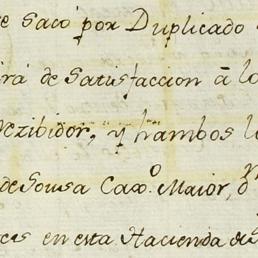 se sacó por Duplicado
irá de Satisfaccion â lo
Rezibidor, y hambos lo
de Sousa Caxº Maior, dn
es en esta Hacienda de